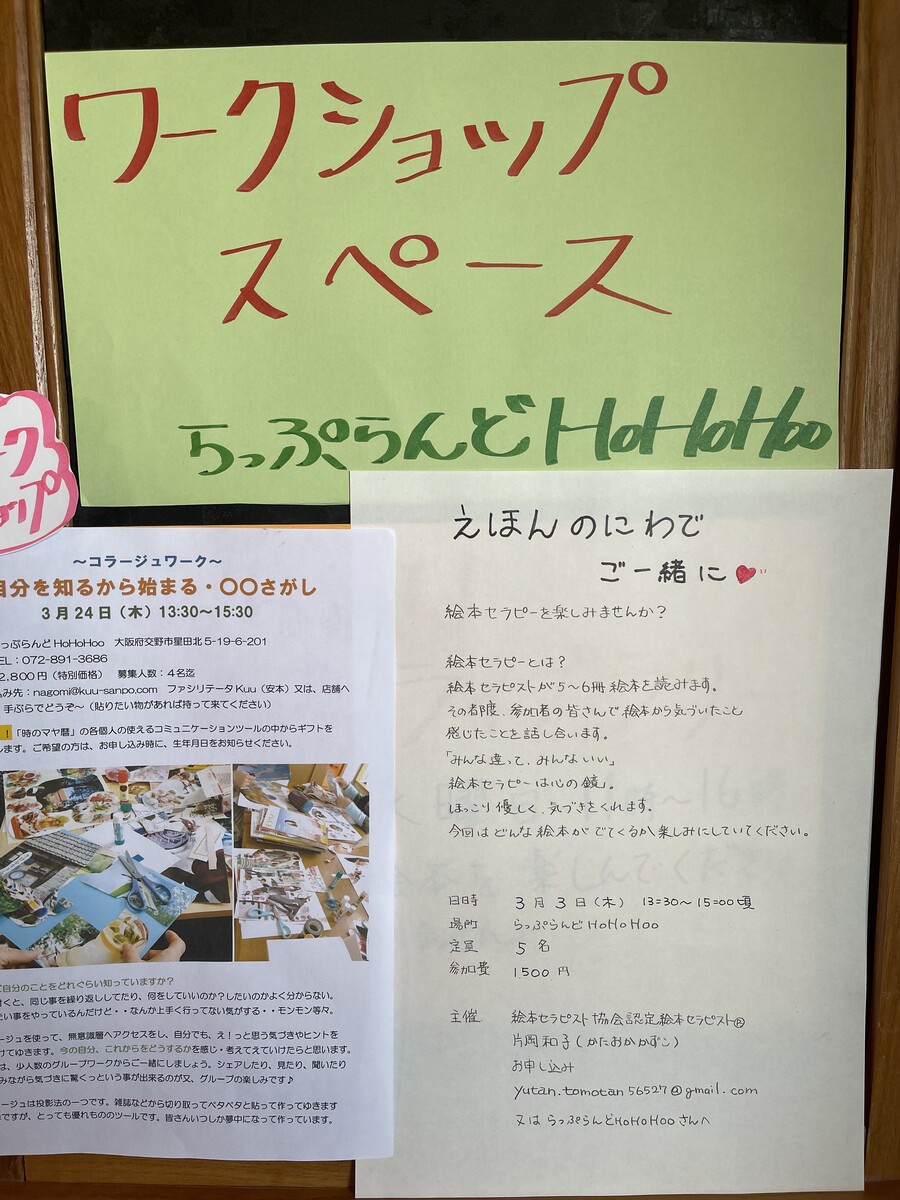 ワークショップ
スペース
らっぷらんど HoHoHoo
ーク
ョップ
～コラージュワーク～
自分を知るから始まる・〇〇さがし
3月24日（木）13:30～15:30
っぷらんどHoHoHoo　大阪府交野市星田北5-19-6-201
EL：072-891-3686
2,800円（特別価格）　募集人数：4名迄
み先：nagomi@kuu-sanpo.com　ファシリテータKuu（安本）又は、店舗へ
手ぶらでどうぞ～（貼りたい物があれば持って来てください）
！「時のマヤ暦」の各個人の使えるコミュニケーションツールの中からギフトを
します。ご希望の方は、お申し込み時に、生年月日をお知らせください。
て自分のことをどれぐらい知っていますか？
付くと、同じ事を繰り返ししてたり、何をしていいのか？したいのかよく分からない。
たい事をやっているんだけど・・なんか上手く行ってない気がする・・モンモン等々。
ージュを使って、無意識層へアクセスをし、自分でも、え！っと思う気づきやヒントを
けてゆきます。今の自分、これからをどうするかを感じ・考えてえていけたらと思います。
は、少人数のグループワークからご一緒にしましょう。シェアしたり、見たり、聞いたり
みながら気づきに驚くっという事が出来るのが又、グループの楽しみです♪
ージュは投影法の一つです。雑誌などから切り取ってペタペタと貼って作ってゆきます
ですが、とっても優れもののツールです。皆さんいつしか夢中になって作っています。
えほんのにわで
ご一緒に♥
絵本セラピーを楽しみませんか？
絵本セラピーとは？
絵本セラピストが5～6冊 絵本を読みます。
その都度、参加者の皆さんで絵本から気づいたこと
感じたことを話し合います。
「みんな違って、みんないい」
絵本セラピーは心の鏡」。
ほっこり優しく、気づきをくれます。
今回はどんな絵本がでてくるか楽しみにしていてください。
日時　3月3日（木）　13:30～15:00頃
場所　らっぷらんどHoHoHoo
定員　5名
参加費　1500円
主催　絵本セラピスト協会認定絵本セラピスト®
片岡和子（かたおかかずこ）
お申し込み
yutan.tomotan56527@gmail.com
又は らっぷらんどHoHoHooさんへ